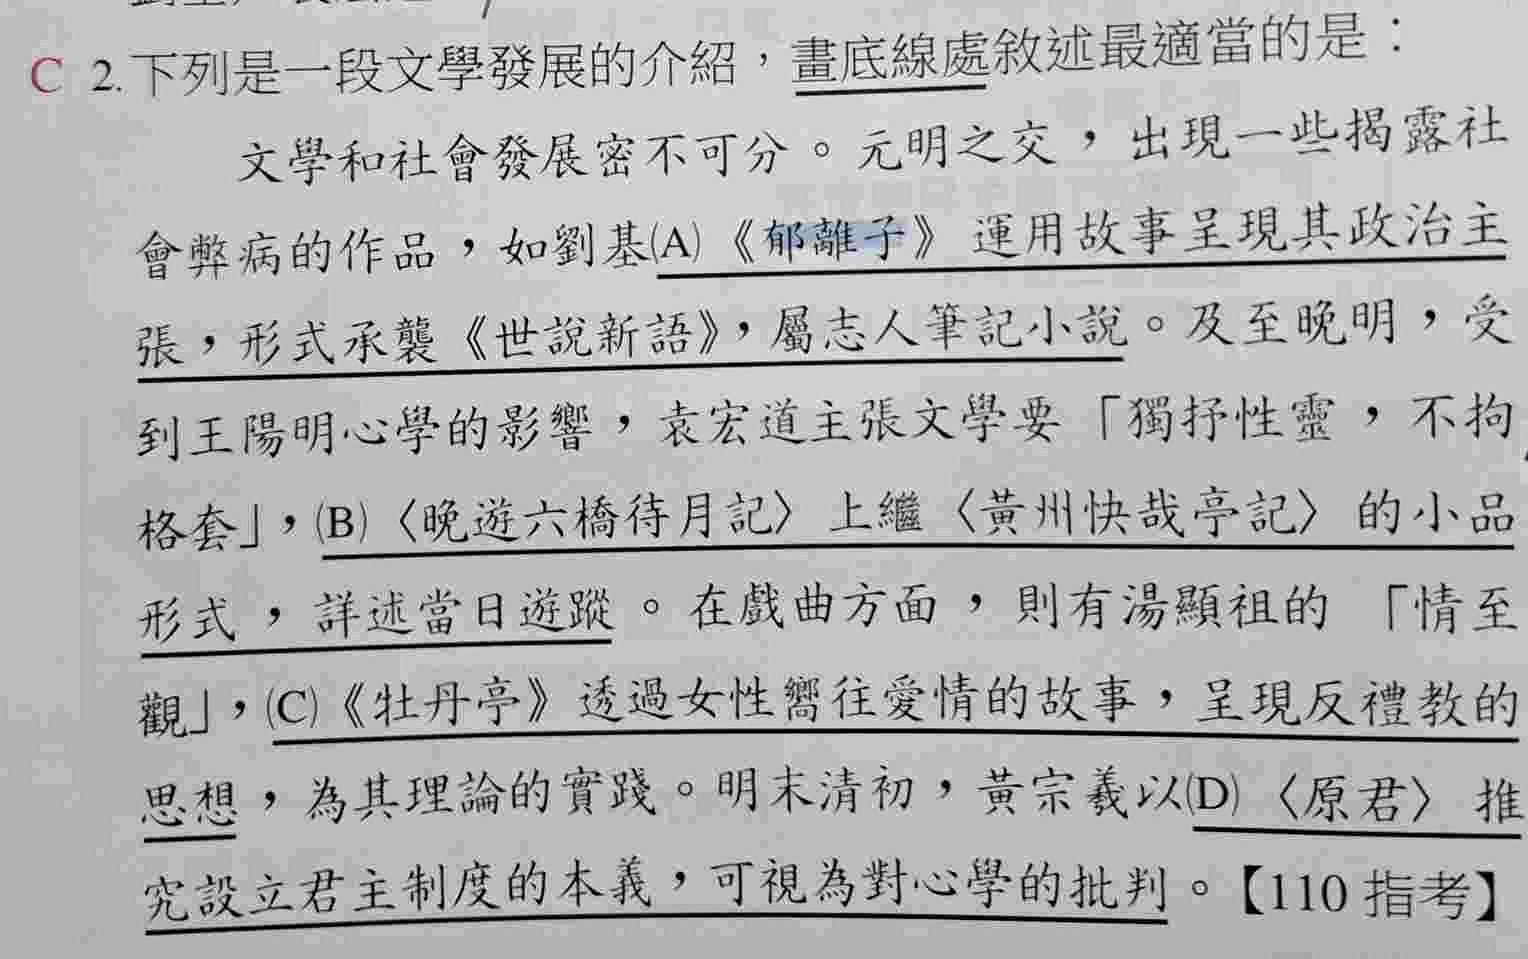 C 2.下列是一段文學發展的介紹，畫底線處敘述最適當的是：
文學和社會發展密不可分。元明之交，出現一些揭露社
會弊病的作品，如劉基(A)《郁離子》運用故事呈現其政治主
張，形式承襲《世說新語》，屬志人筆記小說。及至晚明，受
到王陽明心學的影響，袁宏道主張文學要「獨抒性靈，不拘
格套」，(B)〈晚遊六橋待月記〉上繼〈黃州快哉亭記〉的小品
形式，詳述當日遊蹤。在戲曲方面，則有湯顯祖的「情至
觀」，(C)《牡丹亭》透過女性嚮往愛情的故事，呈現反禮教的
思想，為其理論的實踐。明末清初，黃宗羲以(D)〈原君〉推
究設立君主制度的本義，可視為對心學的批判。【110 指考】